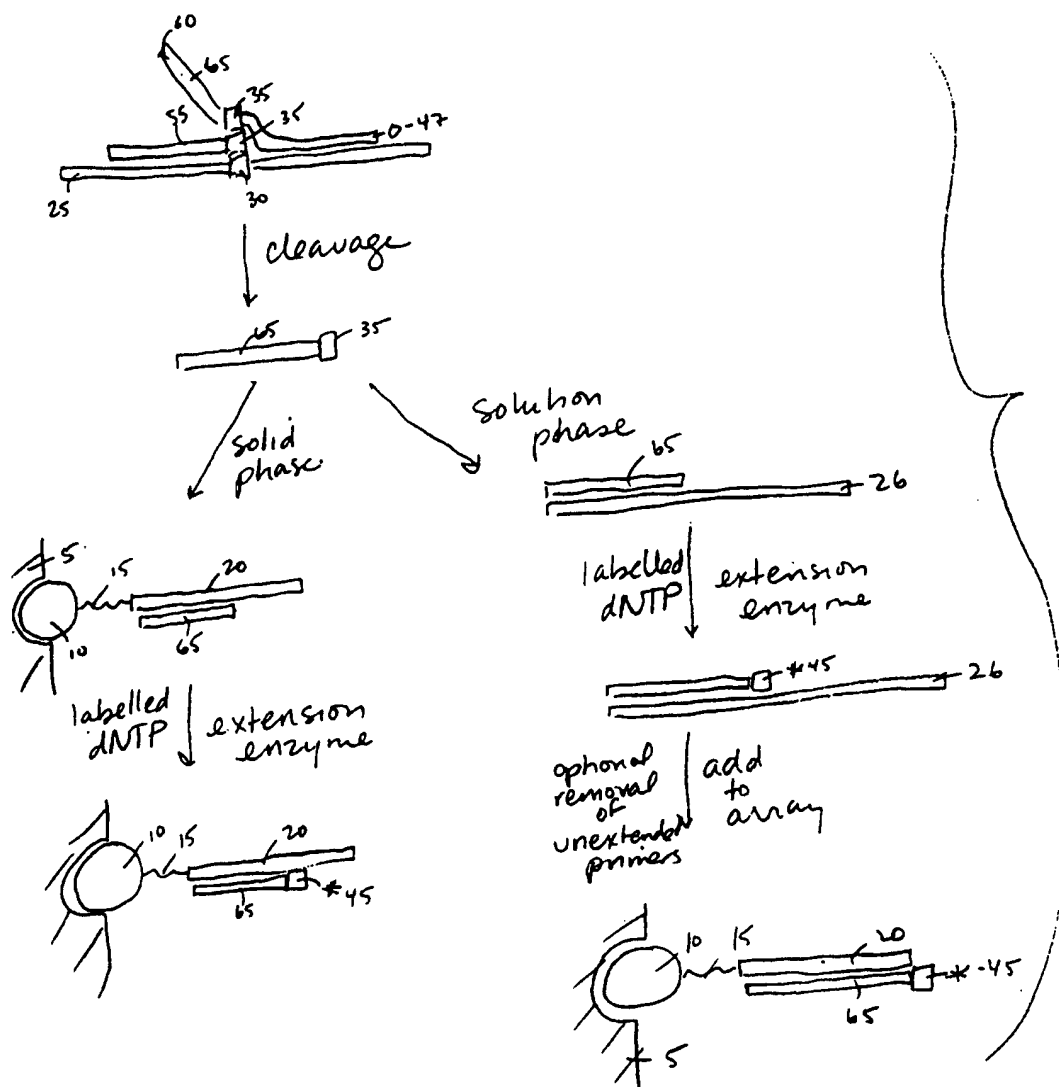 60
65
35
55
35
0-47
25
30
cleavage
65
35
solid
phase
solution
phase
65
26
5
15
20
10
65
labelled
dNTP
extension
enzyme
*45
26
labelled
dNTP
extension
enzyme
optional
removal
of
unextended
primers
add
to
array
10
15
20
65
*45
10
15
20
*-45
65
5